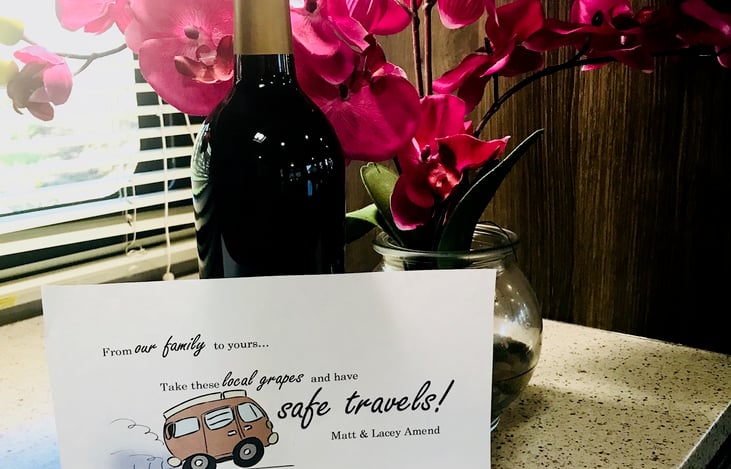 From our family to yours...
Take these local grapes and have
safe travels!
Matt & Lacey Amend